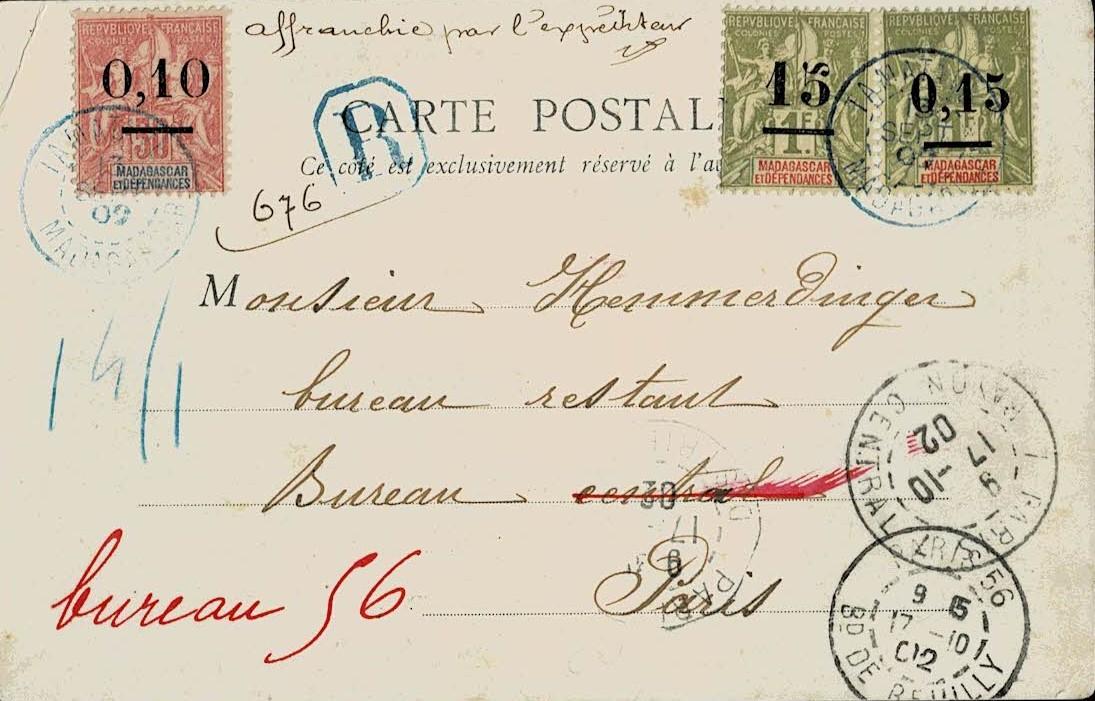 affranchie par l'expéditeur
REPVBLIQVE FRANÇAISE
COLONIES POSTES
0,10
50
MADAGASCAR
ET DÉPENDANCES
REPVBLIQVE FRANÇAISE
COLONIES POSTES
15
1 F.
MADAGASCAR
ET DÉPENDANCES
REPVBLIQVE FRANÇAISE
0,15
MADAGASCAR
ET DÉPENDANCES
TAMATAVE
SEPT
02
MADAGASCAR
R
CARTE POSTAL
Ce côté est exclusivement réservé à l'a
676
Monsieur Hemmerdinger
bureau restant
Bureau central
Paris
bureau 56
14/1
PARIS
17 - 10
02
PARIS 56
9 5
17 - 10
02
BD DE REUILLY